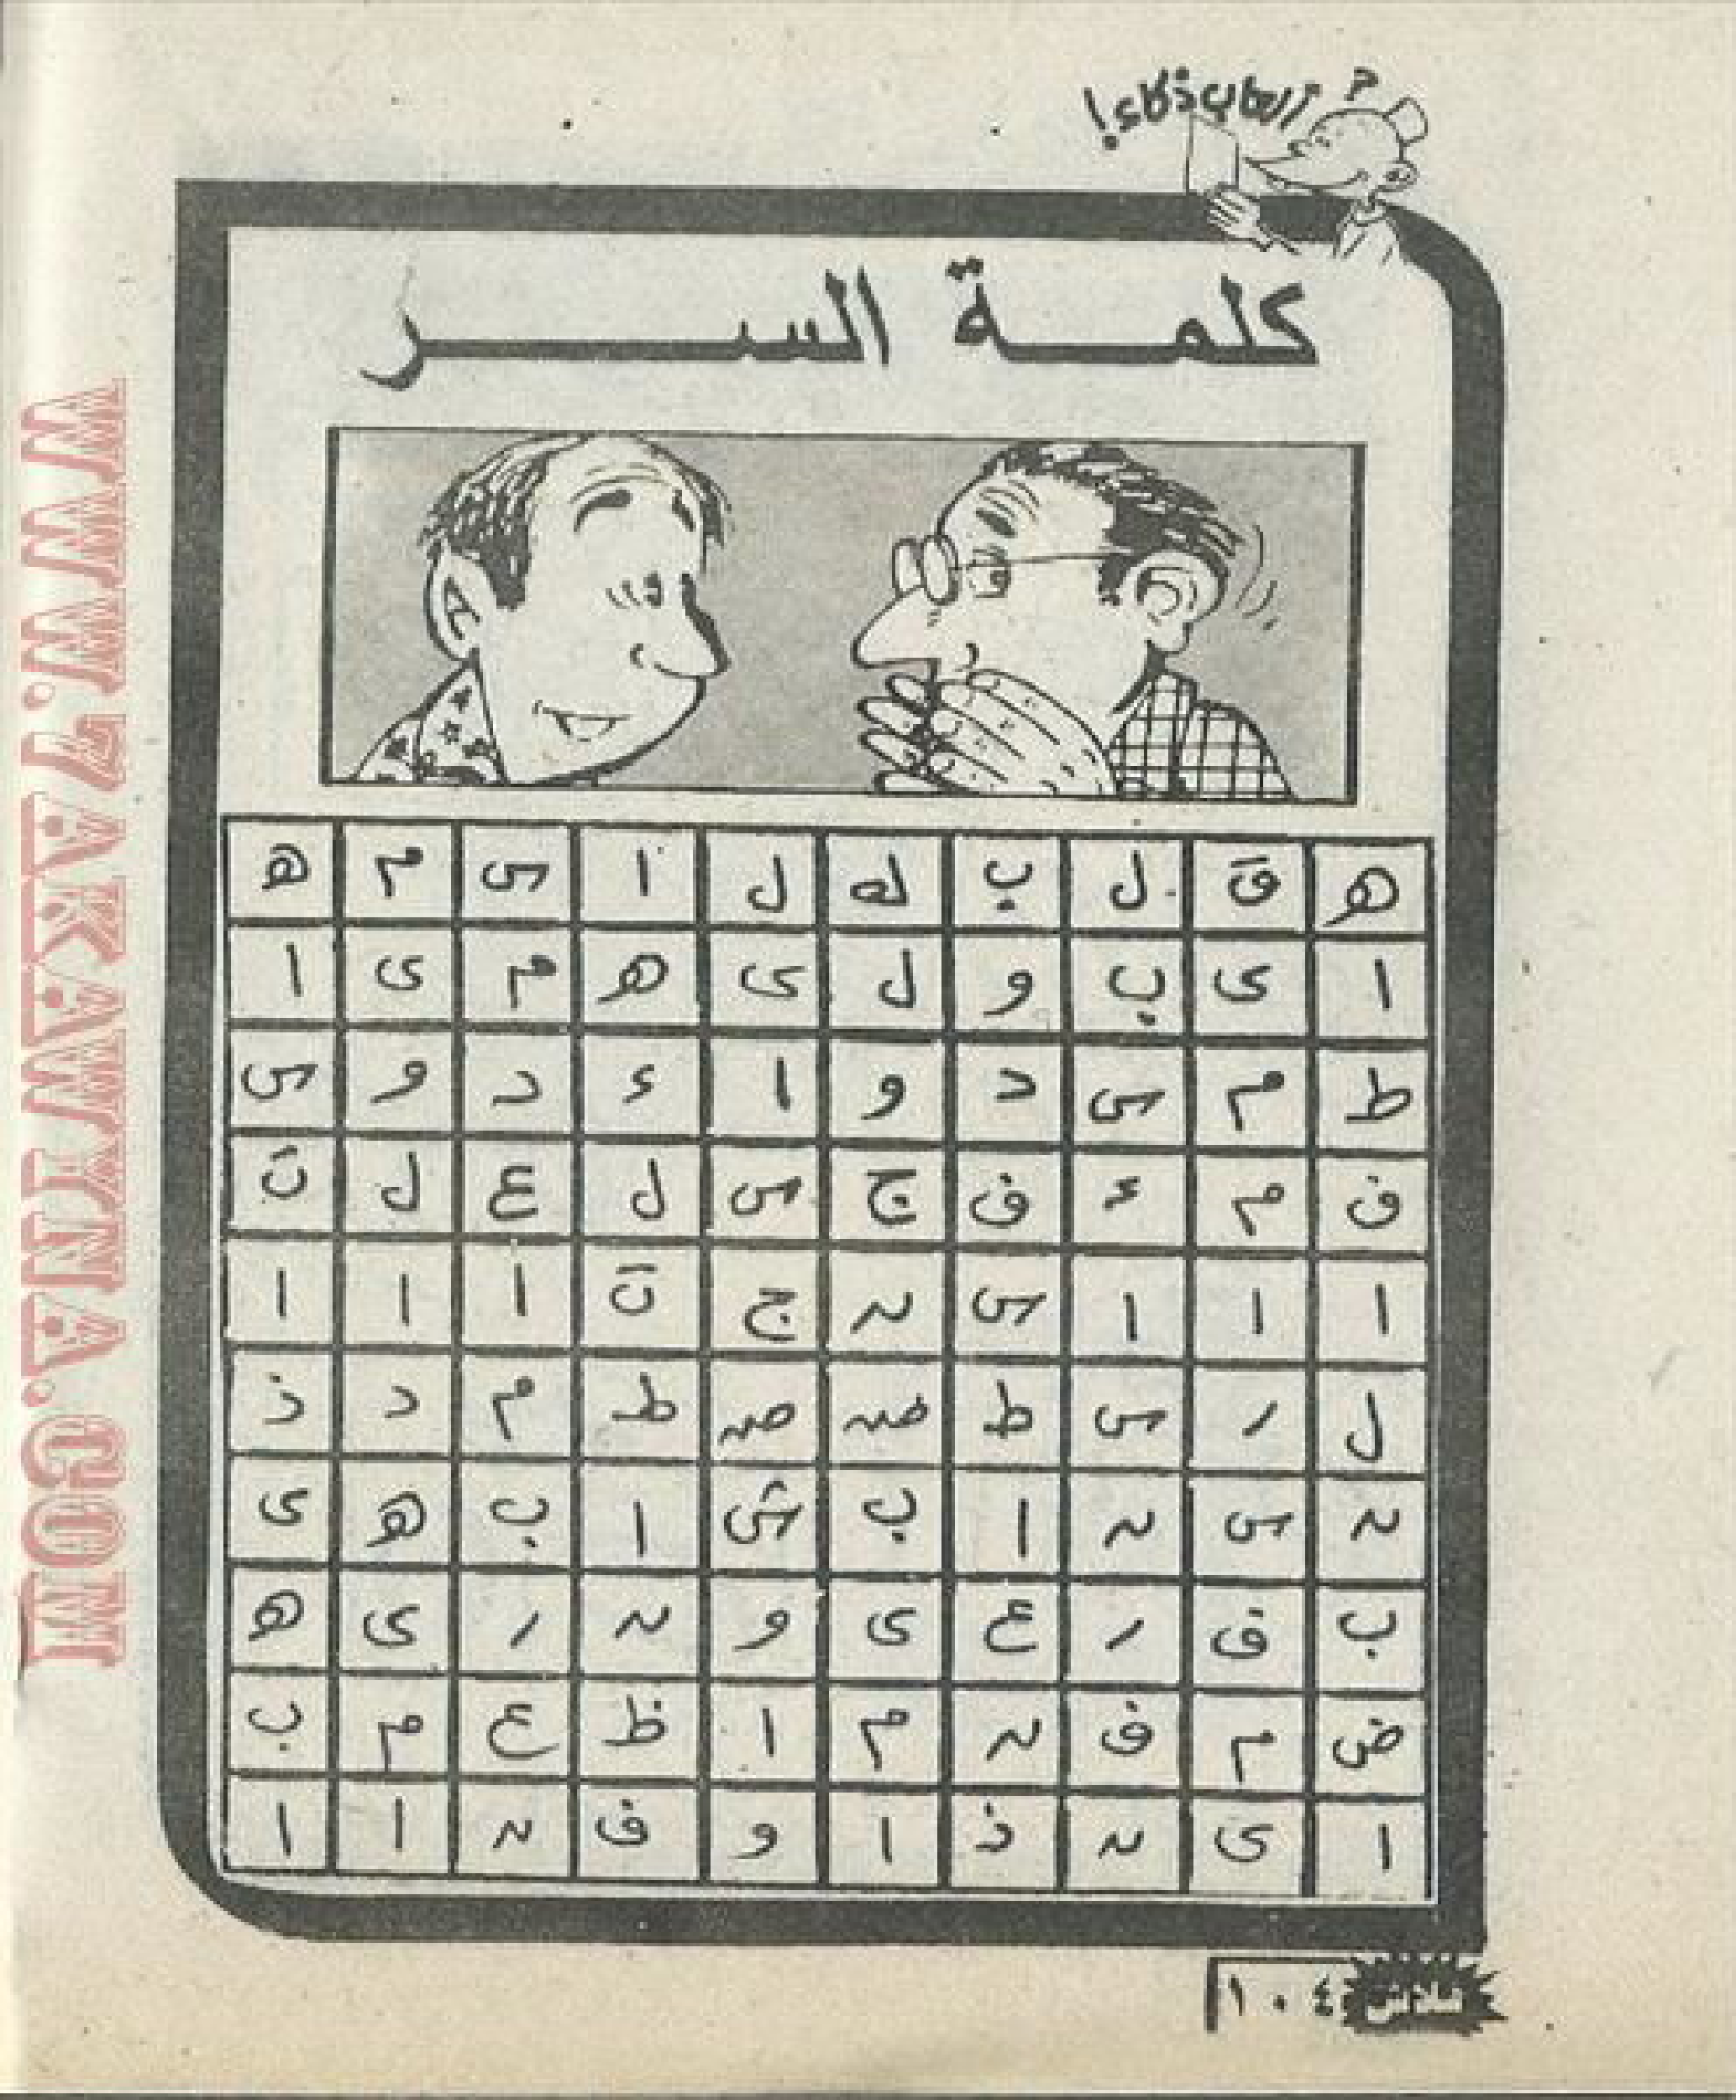 ألعاب ذكاء!
كلمة السر
ه ق ل ب ك ل ا س م ه
ا ى ب و ل ى ه م ى ا
ط م س د و ا ء د و س
ف م ء ف ج س ل ع ل ت
ا ا ا س ن ج ت ا ا ا
ل ر س ط ص ص ط م د ذ
ن س ن ا ب ش ا ب ه ى
ب ف ر ع ى و ن ر ى ه
ض م ف ن م ا ظ ع م ب
ا ى ن ذ ا و ف ن ا ا
فلاش ١٠٤
WWW.7AKAWEENA.COM